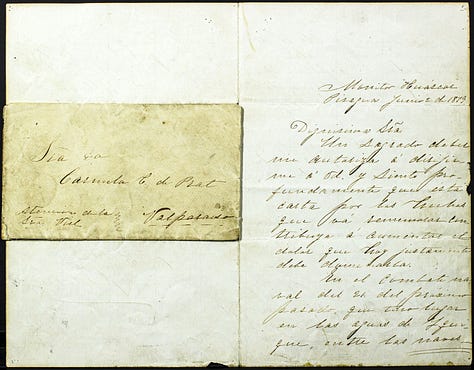 Sra Da
Carmela C. de Prat
Valparaiso
Monitor Huáscar
Pisagua Junio 2 de 1879
Dignisima Sra
Un Sagrado deber
me autoriza á dirijir
me á Vd. y siento pro
fundamente que esta
carta por las luchas
que vá rememorar con
tribuya á aumentar el
dolor que hoy justamente
debe dominarla.
En el Combate na
val del 21 del próximo
pasado, que tuvo lugar
en las aguas de Iqui
que, entre las naves